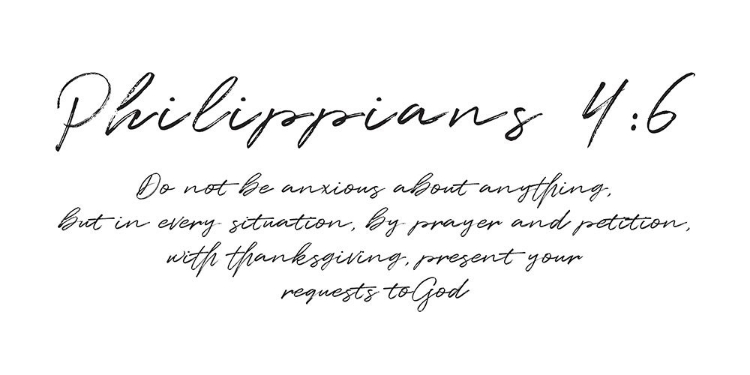 Philippians 4:6
Do not be anxious about anything,
but in every situation, by prayer and petition,
with thanksgiving, present your
requests toGod